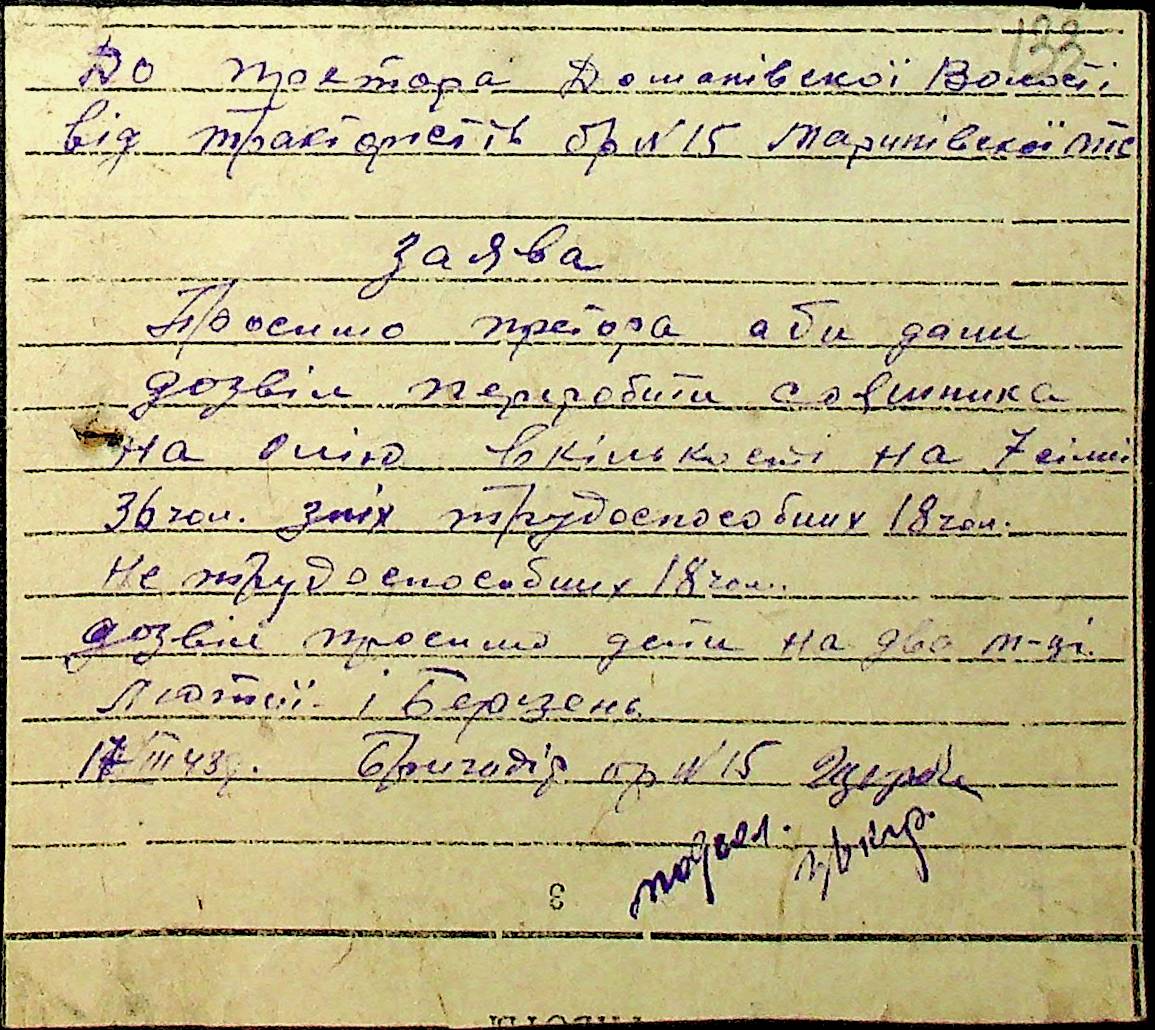 133
До претора Доманівскої Волості
від трактористів бр N 15 Маринівскої мтс
Заява
Просимо претора аби дали
дозвіл переробити соняшника
на олію вкількості на 7 сімей
36 чол. зних трудоспособних 18 чол.
Не трудоспособних 18 чол.
дозвіл просимо дати на два м-ці
Лютий і Березень
17 III 43 р. Бригадір бр N 15
3